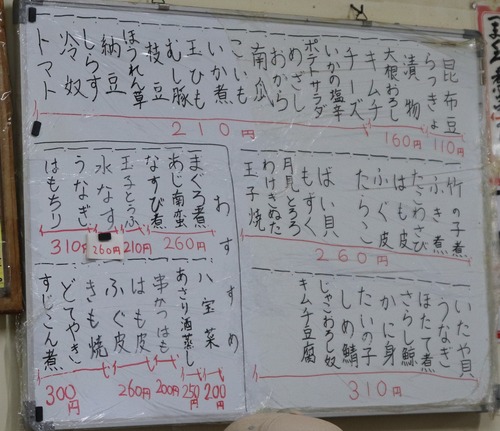 昆布豆
らっきょ
漬物
大根おろし
キムチ
チーズ
いかの塩辛
ポテトサラダ
めざし
おから
南瓜
こいも
いか煮
玉ひも
むし豚
枝豆
ほうれん草
納豆
しらす
冷奴
トマト
110円
160円
210円
竹の子煮
ふき煮
たこわさび
はも皮
ふぐ皮
たらこ
ばい貝
もずく
月見とろろ
わけぎぬた
玉子焼
260円
いたや貝
うなぎ
ほたて煮
さらし鯨
かに身
たいの子
しめ鯖
じゃこおろし
キムチ豆腐
310円
おすすめ
まぐろ煮
あじ南蛮
なすび煮
玉子とうふ
水なす
うなぎ
はもちり
260円
210円
260円
310円
八宝菜
あさり酒蒸し
串かつはも
はも皮
ふぐ皮
きも焼
どてやき
すじこん煮
200円
250円
200円
260円
300円